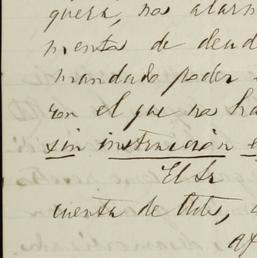 quera, no alarm
menta de deud
mandado poder
con el que no ha
sin instrucción e
El Sr
cuenta de
af